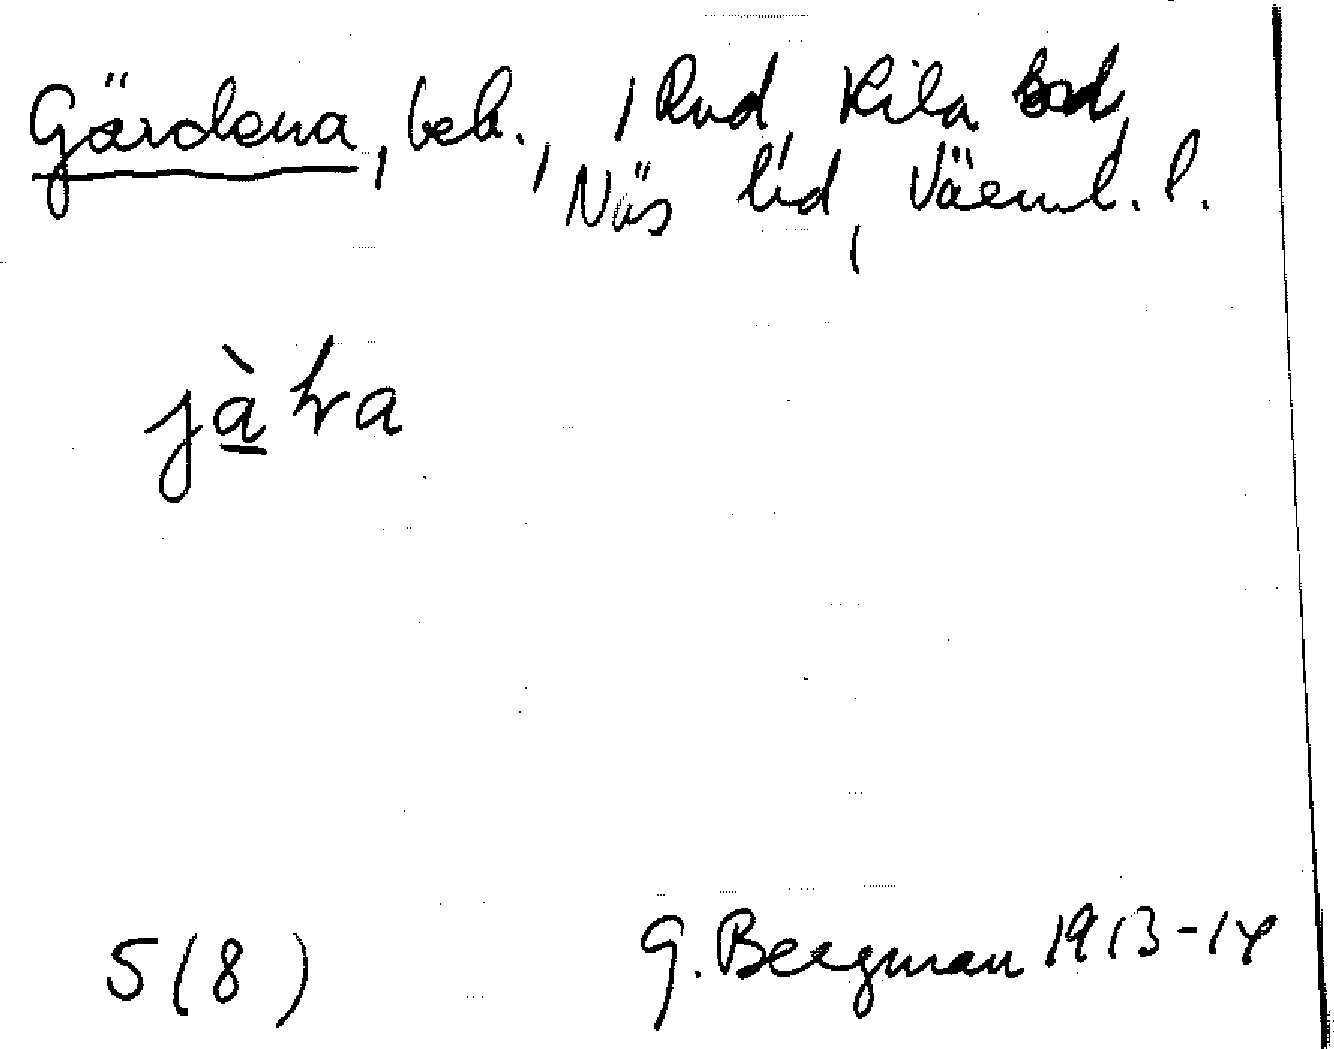 Gärdena, beb., 1 Rud, Kila sd,
Näs hd, Värml. l.
jàɽa
5(8) G. Bergman 1913-14